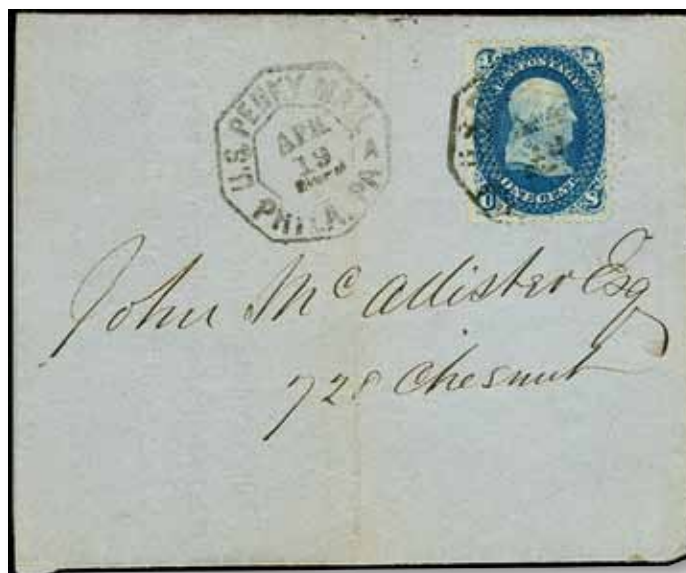 U.S. PENNY MAIL
APR
19
PHILA. PA
U.S. POSTAGE
ONE CENT
John Mc allister Esq
728 Chesnut